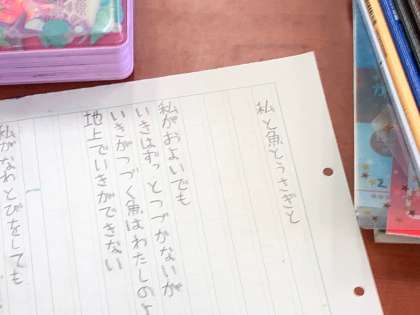 私と魚とうさぎと
私がおよいでも
いきはずっとつづかないが
いきがつづく魚はわたしのよ
地上でいきができない
私がなわとびをしても